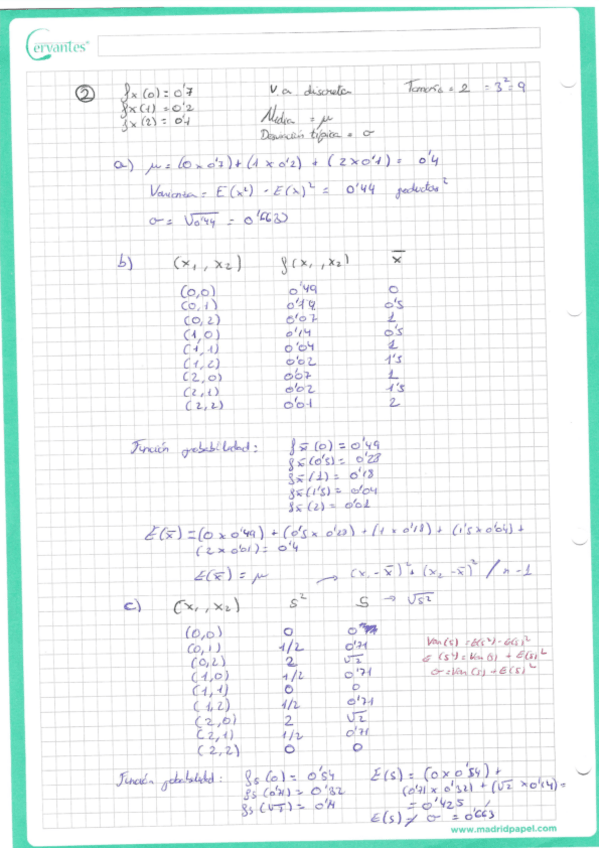 Cervantes
② fx(0) = 0'7 V a discreta Tamaño = 2 = 3² = 9
fx(1) = 0'2 Media = μ
fx(2) = 0'1 Desviación típica = σ
a) μ = (0 x 0'7) + (1 x 0'2) + (2 x 0'1) = 0'4
Varianza = E(x²) - E(x)² = 0'44 productos²
σ = √0'44 = 0'6633
b) (x₁, x₂) f(x₁, x₂) x̄
(0,0) 0'49 0
(0,1) 0'14 0'5
(0,2) 0'07 1
(1,0) 0'14 0'5
(1,1) 0'04 1
(1,2) 0'02 1'5
(2,0) 0'07 1
(2,1) 0'02 1'5
(2,2) 0'01 2
Función probabilidad: fx̄(0) = 0'49
fx̄(0'5) = 0'28
fx̄(1) = 0'18
fx̄(1'5) = 0'04
fx̄(2) = 0'01
E(x̄) = (0 x 0'49) + (0'5 x 0'28) + (1 x 0'18) + (1'5 x 0'04) +
(2 x 0'01) = 0'4
E(x̄) = μ → (x₁ - x̄)² + (x₂ - x̄)² / n - 1
c) (x₁, x₂) s² S → √s²
(0,0) 0 0
(0,1) 1/2 0'71
(0,2) 2 √2
(1,0) 1/2 0'71
(1,1) 0 0
(1,2) 1/2 0'71
(2,0) 2 √2
(2,1) 1/2 0'71
(2,2) 0 0
Var(s) = E(s²) - E(s)²
E(s²) = Var(s) + E(s)²
σ = Var(s) + E(s)²
Función probabilidad: fs(0) = 0'54 E(s) = (0 x 0'54) +
fs(0'71) = 0'32 (0'71 x 0'32) + (√2 x 0'14) =
fs(√2) = 0'14 = 0'425
E(s) ≠ σ = 0'663
www.madridpapel.com